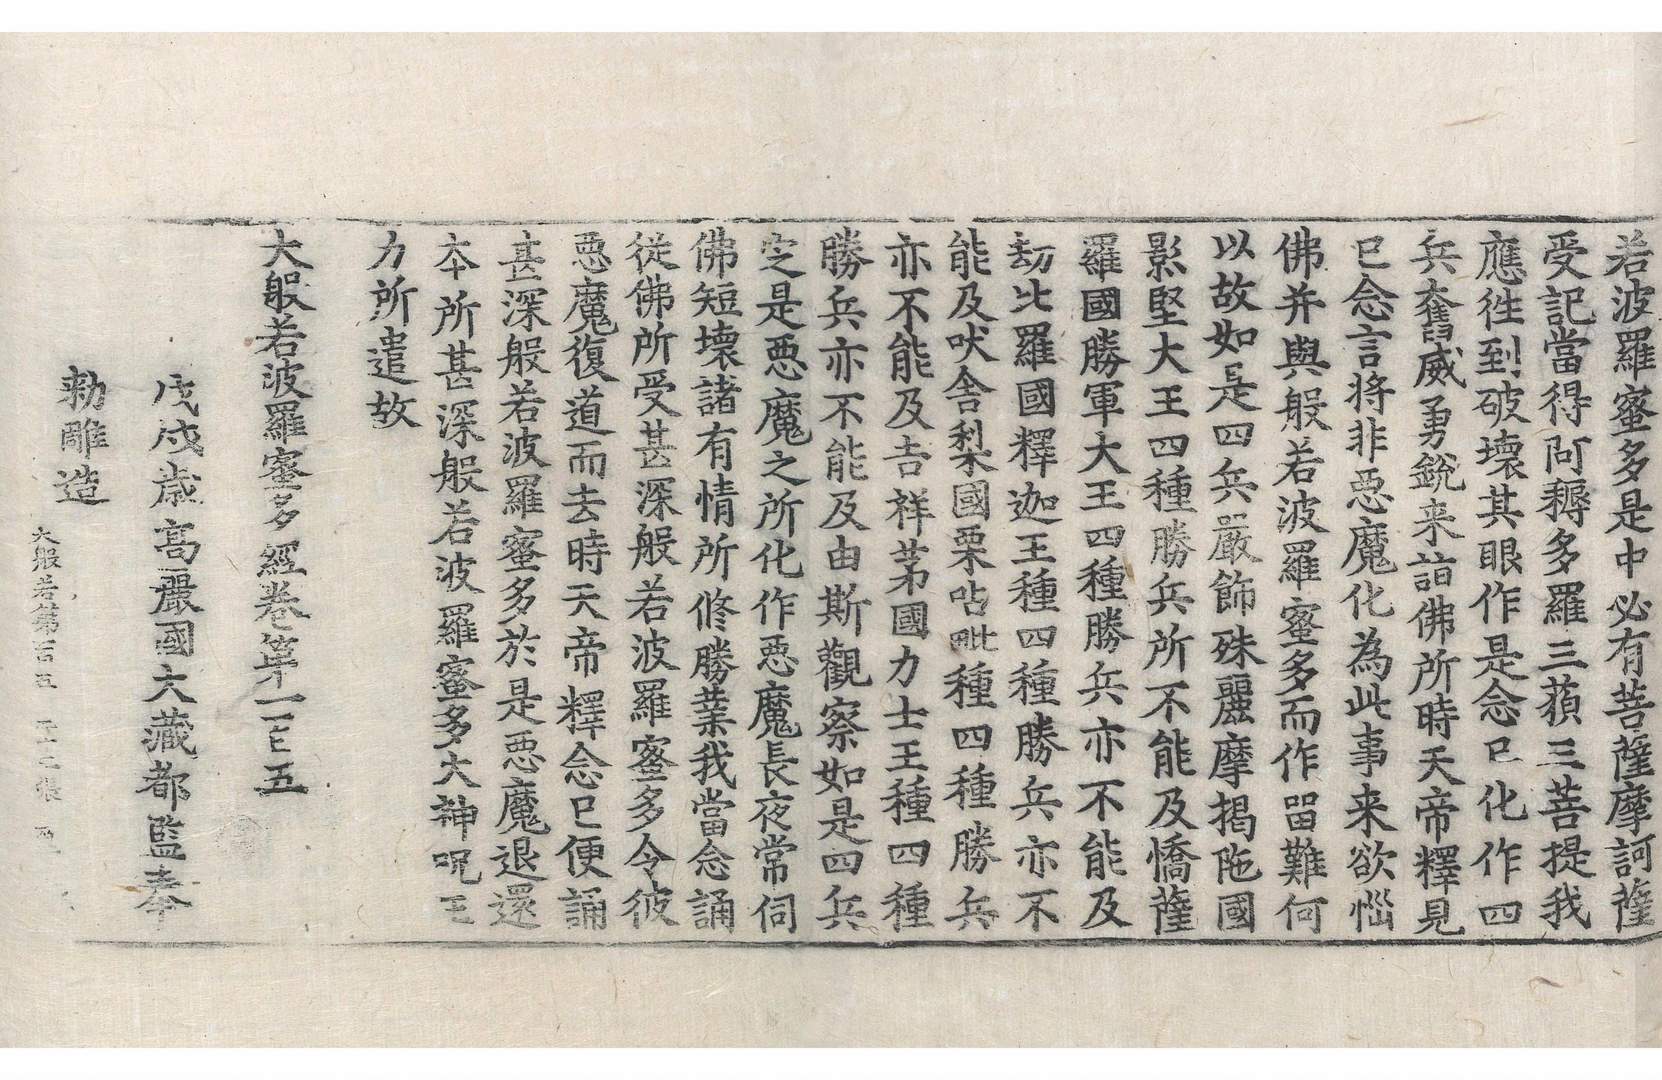 若波羅蜜多是中必有菩薩摩訶薩
受記當得阿耨多羅三藐三菩提我
應往到破壞其眼作是念已化作四
兵奮威勇銳来詣佛所時天帝釋見
已念言將非惡魔化為此事来欲惱
佛并與般若波羅蜜多而作留難何
以故如是四兵嚴飾殊麗摩揭陁國
影堅大王四種勝兵所不能及憍薩
羅國勝軍大王四種勝兵亦不能及
劫比羅國釋迦王種四種勝兵亦不
能及吠舍梨國栗呫毗種四種勝兵
亦不能及吉祥茅國力士王種四種
勝兵亦不能及由斯觀察如是四兵
定是惡魔之所化作惡魔長夜常伺
佛短壞諸有情所修勝業我當念誦
從佛所受甚深般若波羅蜜多令彼
惡魔復道而去時天帝釋念已便誦
甚深般若波羅蜜多於是惡魔退還
本所甚深般若波羅蜜多大神呪王
力所遣故
大般若波羅蜜多經卷第一百五
戊戌歲高麗國大藏都監奉
勑雕造
大般若第百五 二十二張